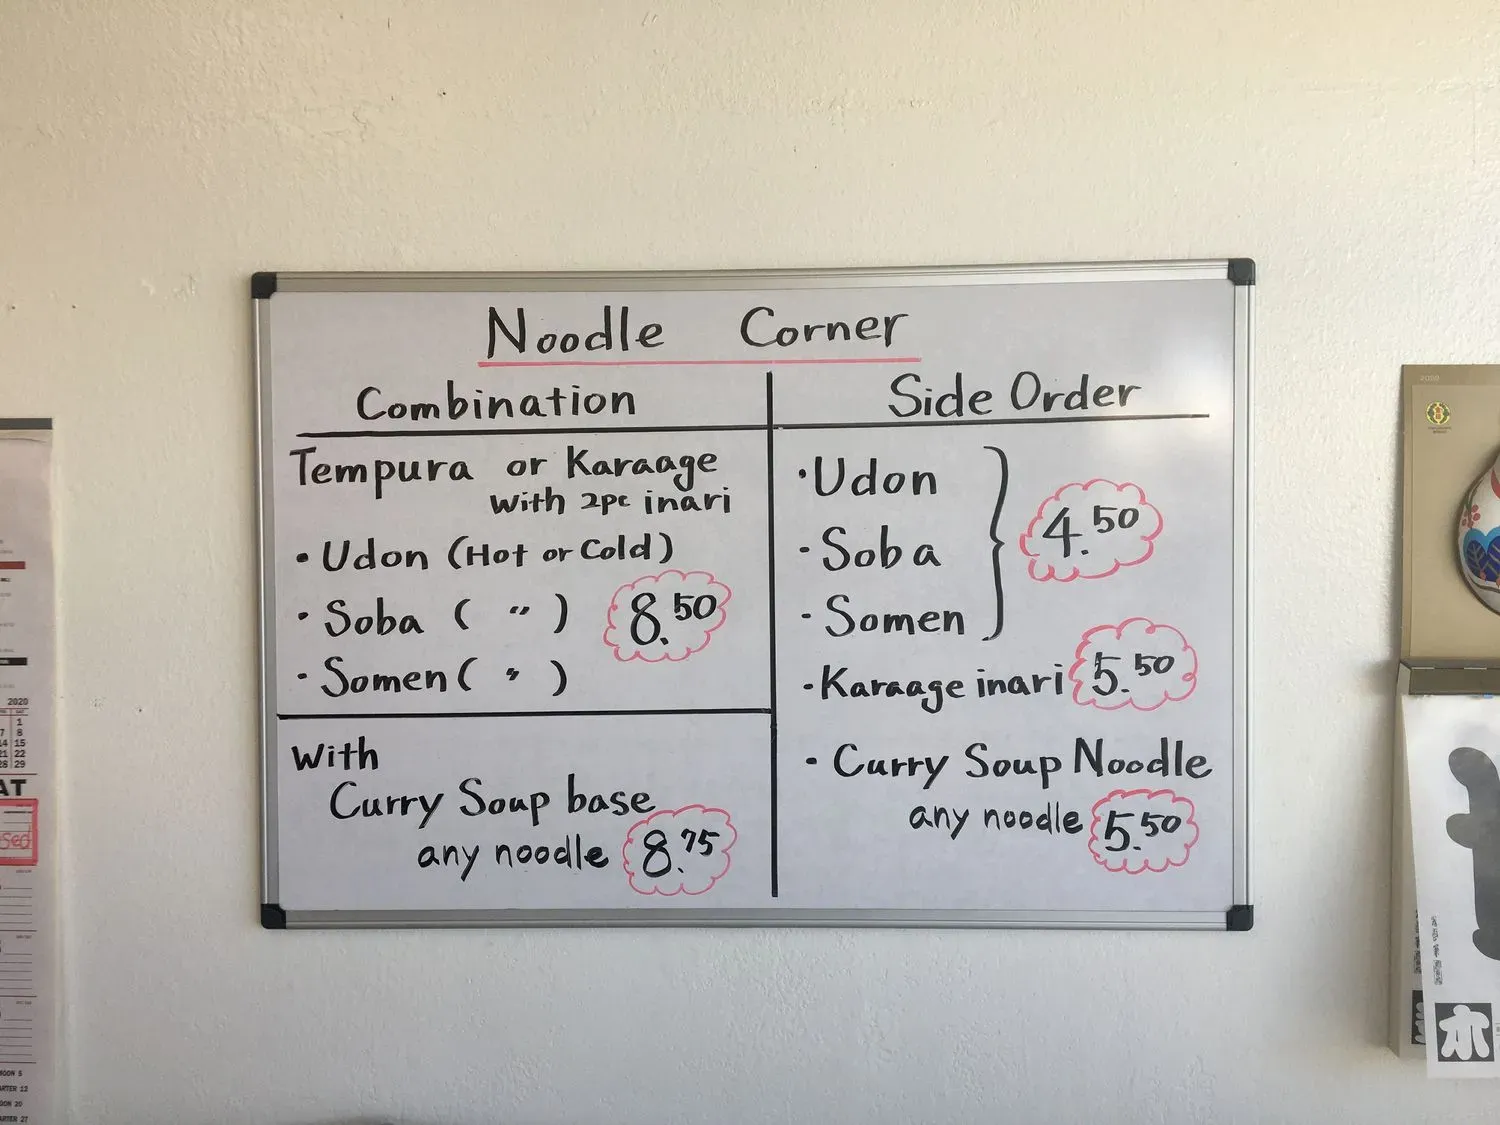 Noodle Corner
Combination
Tempura or Karaage
with 2pc inari
• Udon (Hot or Cold)
• Soba ( 〃 )
• Somen ( 〃 )
8.50
With
Curry Soup base
any noodle 8.75
Side Order
• Udon
• Soba
• Somen
4.50
• Karaage inari 5.50
• Curry Soup Noodle
any noodle 5.50
2020
1
7 8
14 15
21 22
28 29
2020